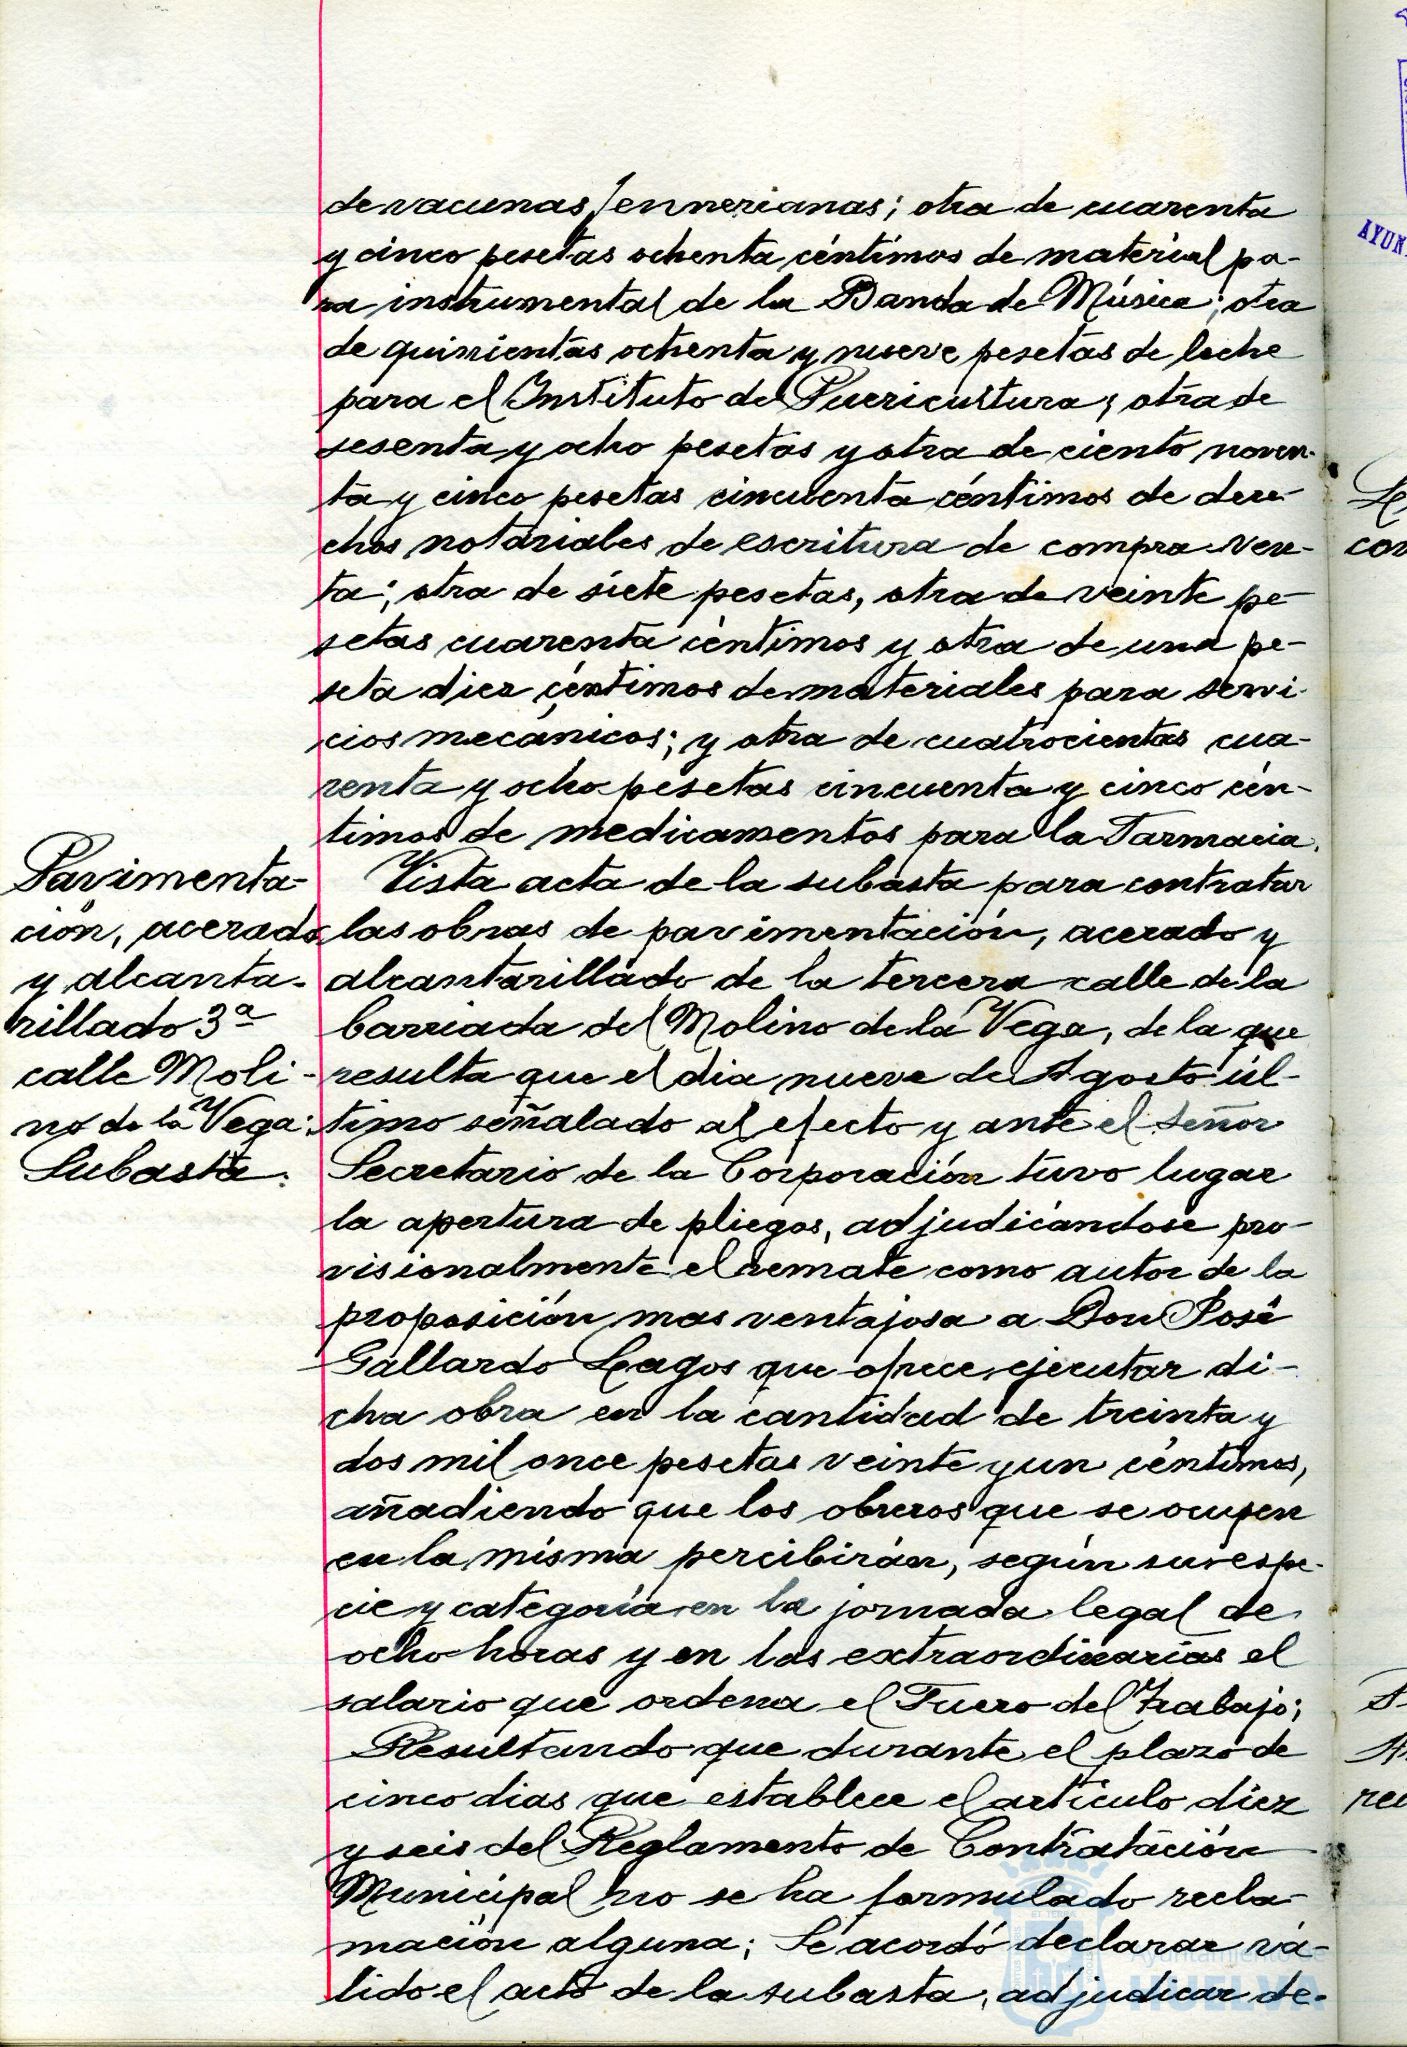 de vacunas Jennerianas; otra de cuarenta
y cinco pesetas ochenta céntimos de material pa-
ra instrumental de la Banda de Música; otra
de quinientas ochenta y nueve pesetas de leche
para el Instituto de Puericultura; otra de
sesenta y ocho pesetas y otra de ciento noven-
ta y cinco pesetas cincuenta céntimos de dere-
chos notariales de escritura de compra-ven-
ta; otra de siete pesetas, otra de veinte pe-
setas cuarenta céntimos y otra de una pe-
seta diez céntimos de materiales para servi-
cios mecánicos; y otra de cuatrocientas cua-
renta y ocho pesetas cincuenta y cinco cén-
timos de medicamentos para la Farmacia.
Pavimenta-
ción, acerado
y alcanta-
rillado 3ª
calle Moli-
no de la Vega:
Subasta.
Vista acta de la subasta para contratar
las obras de pavimentación, acerado y
alcantarillado de la tercera calle de la
barriada del Molino de la Vega, de la que
resulta que el dia nueve de Agosto úl-
timo señalado al efecto y ante el señor
Secretario de la Corporación tuvo lugar
la apertura de pliegos, adjudicándose pro-
visionalmente el remate como autor de la
proposición mas ventajosa a Don José
Gallardo Lagos que ofrece ejecutar di-
cha obra en la cantidad de treinta y
dos mil once pesetas veinte y un céntimos,
añadiendo que los obreros que se ocupen
en la misma percibirán, según su espe-
cie y categoría en la jornada legal de
ocho horas y en las extraordinarias el
salario que ordena el Fuero del Trabajo;
Resultando que durante el plazo de
cinco dias que establece el artículo diez
y seis del Reglamento de Contratación
Municipal no se ha formulado recla-
mación alguna; Se acordó declarar vá-
lido el acto de la subasta, adjudicar de-
Ayuntamiento de
HUELVA
AYUN
con
rec